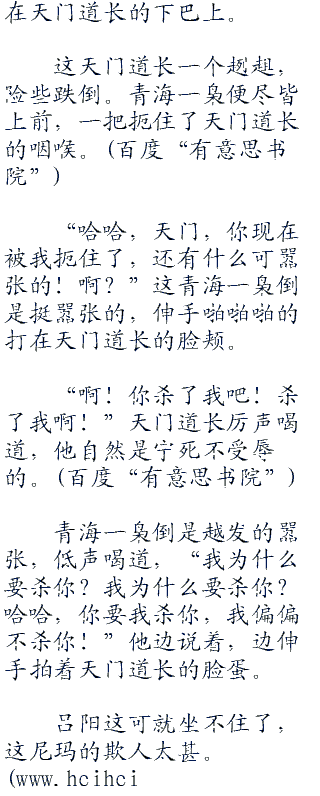 在天门道长的下巴上。
这天门道长一个趔趄，
险些跌倒。青海一枭便尽皆
上前，一把扼住了天门道长
的咽喉。(百度“有意思书
院”)
“哈哈，天门，你现在
被我扼住了，还有什么可嚣
张的！啊？”这青海一枭倒
是挺嚣张的，伸手啪啪啪的
打在天门道长的脸颊。
“啊！你杀了我吧！杀
了我啊！”天门道长厉声喝
道，他自然是宁死不受辱
的。(百度“有意思书院”)
青海一枭倒是越发的嚣
张，低声喝道，“我为什么
要杀你？我为什么要杀你？
哈哈，你要我杀你，我偏偏
不杀你！”他边说着，边伸
手拍着天门道长的脸蛋。
吕阳这可就坐不住了，
这尼玛的欺人太甚。
(www.hcihci